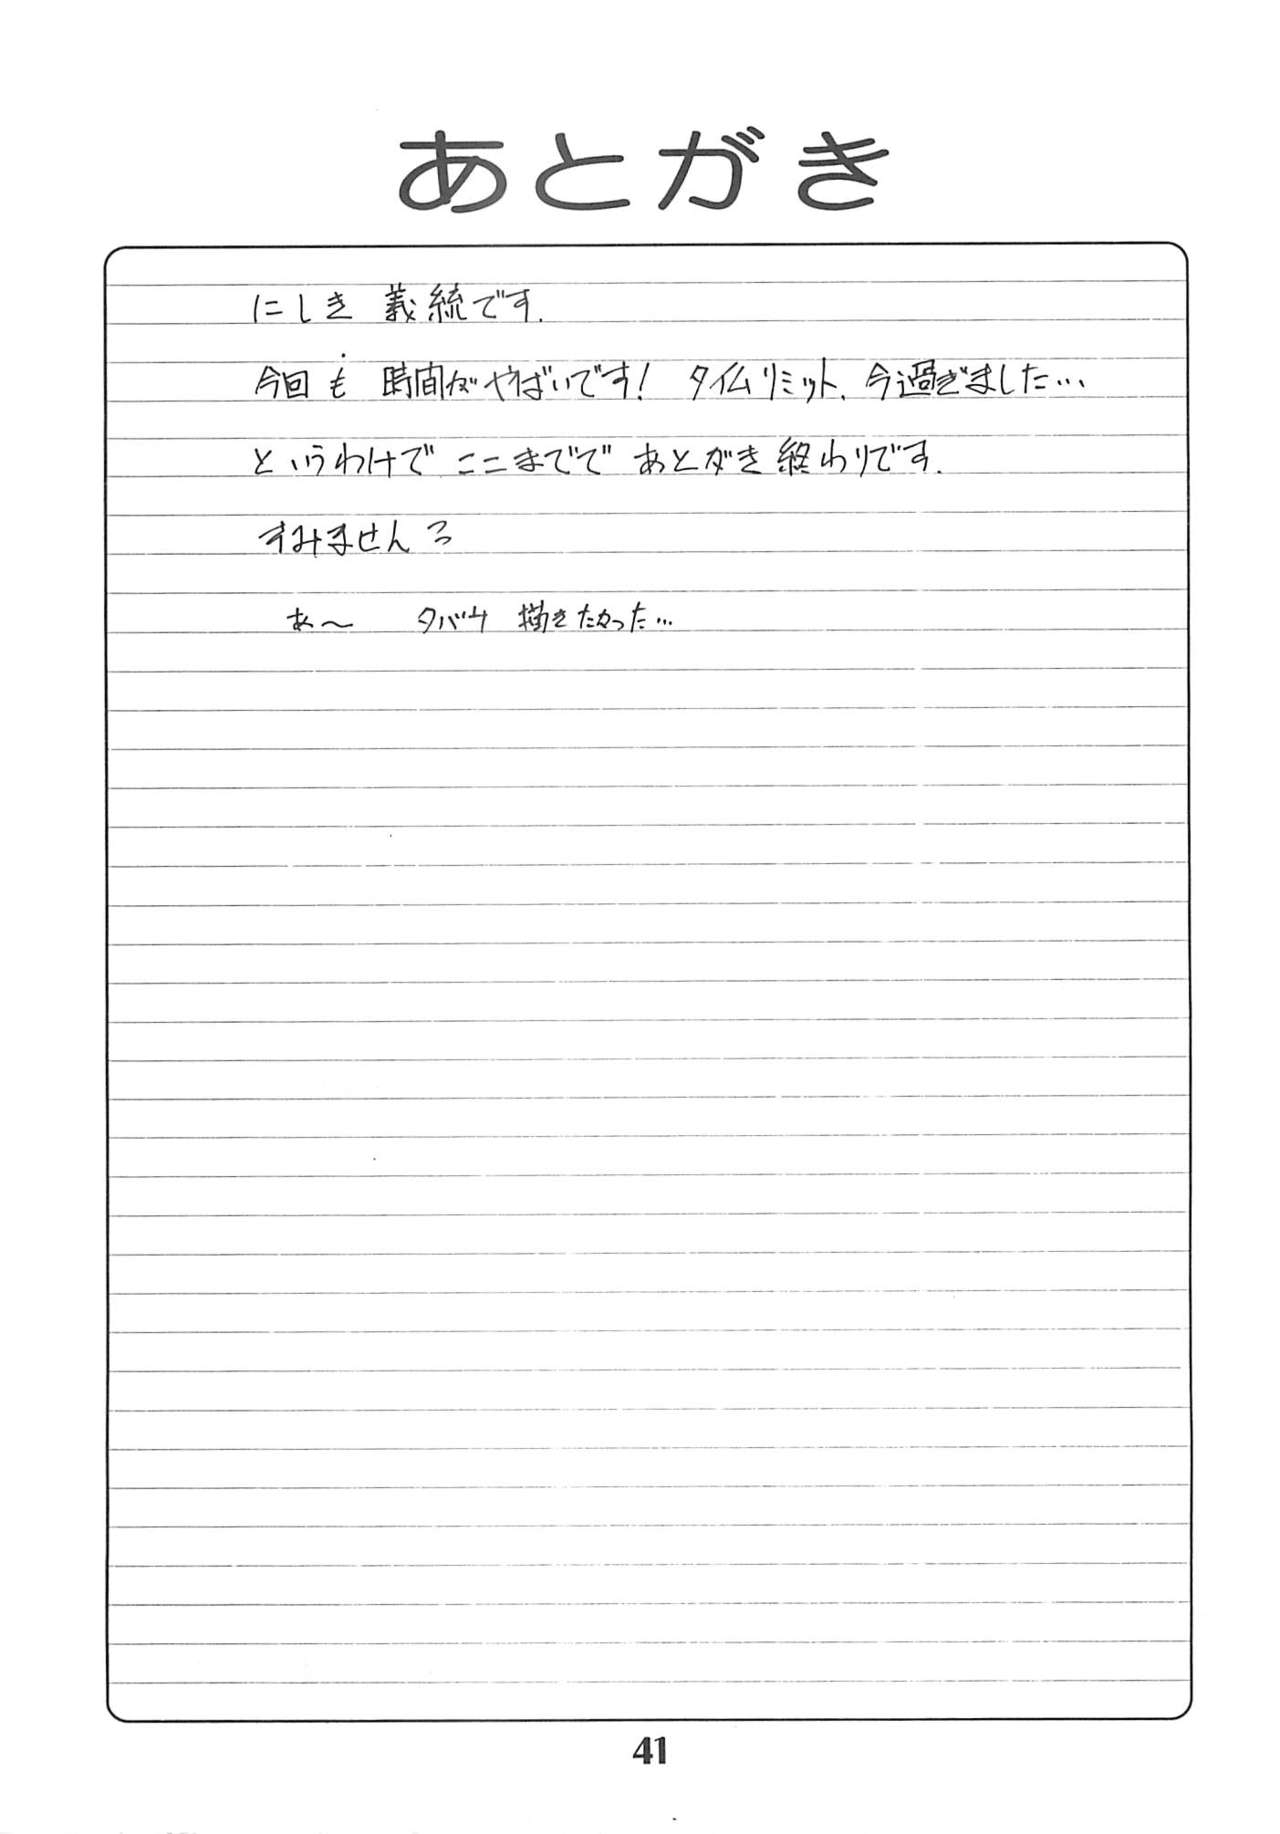 あとがき
にしき 義統です.
今回も 時間がやばいです! タイムリミット、今過ぎました…
というわけで ここまでで あとがき終わりです.
すみません
あ〜 タバサ 描きたかった…
41